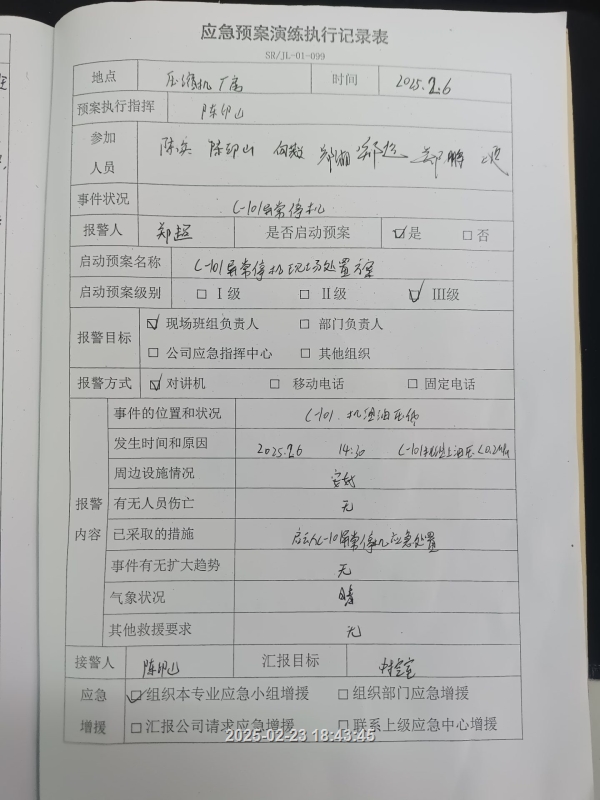 应急预案演练执行记录表
SR/JL-01-099
地点 压缩机厂房 时间 2025.2.6
预案执行指挥 陈印山
参加人员 陈兵 陈印山 郑超 郑鹏
事件状况 C-101异常停机
报警人 郑超 是否启动预案 ☑是 □否
启动预案名称 C-101异常停机现场处置方案
启动预案级别 □Ⅰ级 □Ⅱ级 ☑Ⅲ级
报警目标 ☑现场班组负责人 □部门负责人
□公司应急指挥中心 □其他组织
报警方式 ☑对讲机 □移动电话 □固定电话
报警内容
事件的位置和状况 C-101.机组油压低
发生时间和原因 2025.2.6 14:30 C-101 油压<0.2MPa
周边设施情况 完好
有无人员伤亡 无
已采取的措施 启动C-101异常停机应急处置
事件有无扩大趋势 无
气象状况 晴
其他救援要求 无
接警人 陈印山 汇报目标 中控室
应急增援 ☑组织本专业应急小组增援 □组织部门应急增援
□汇报公司请求应急增援 □联系上级应急中心增援
2025-02-23 18:43:45